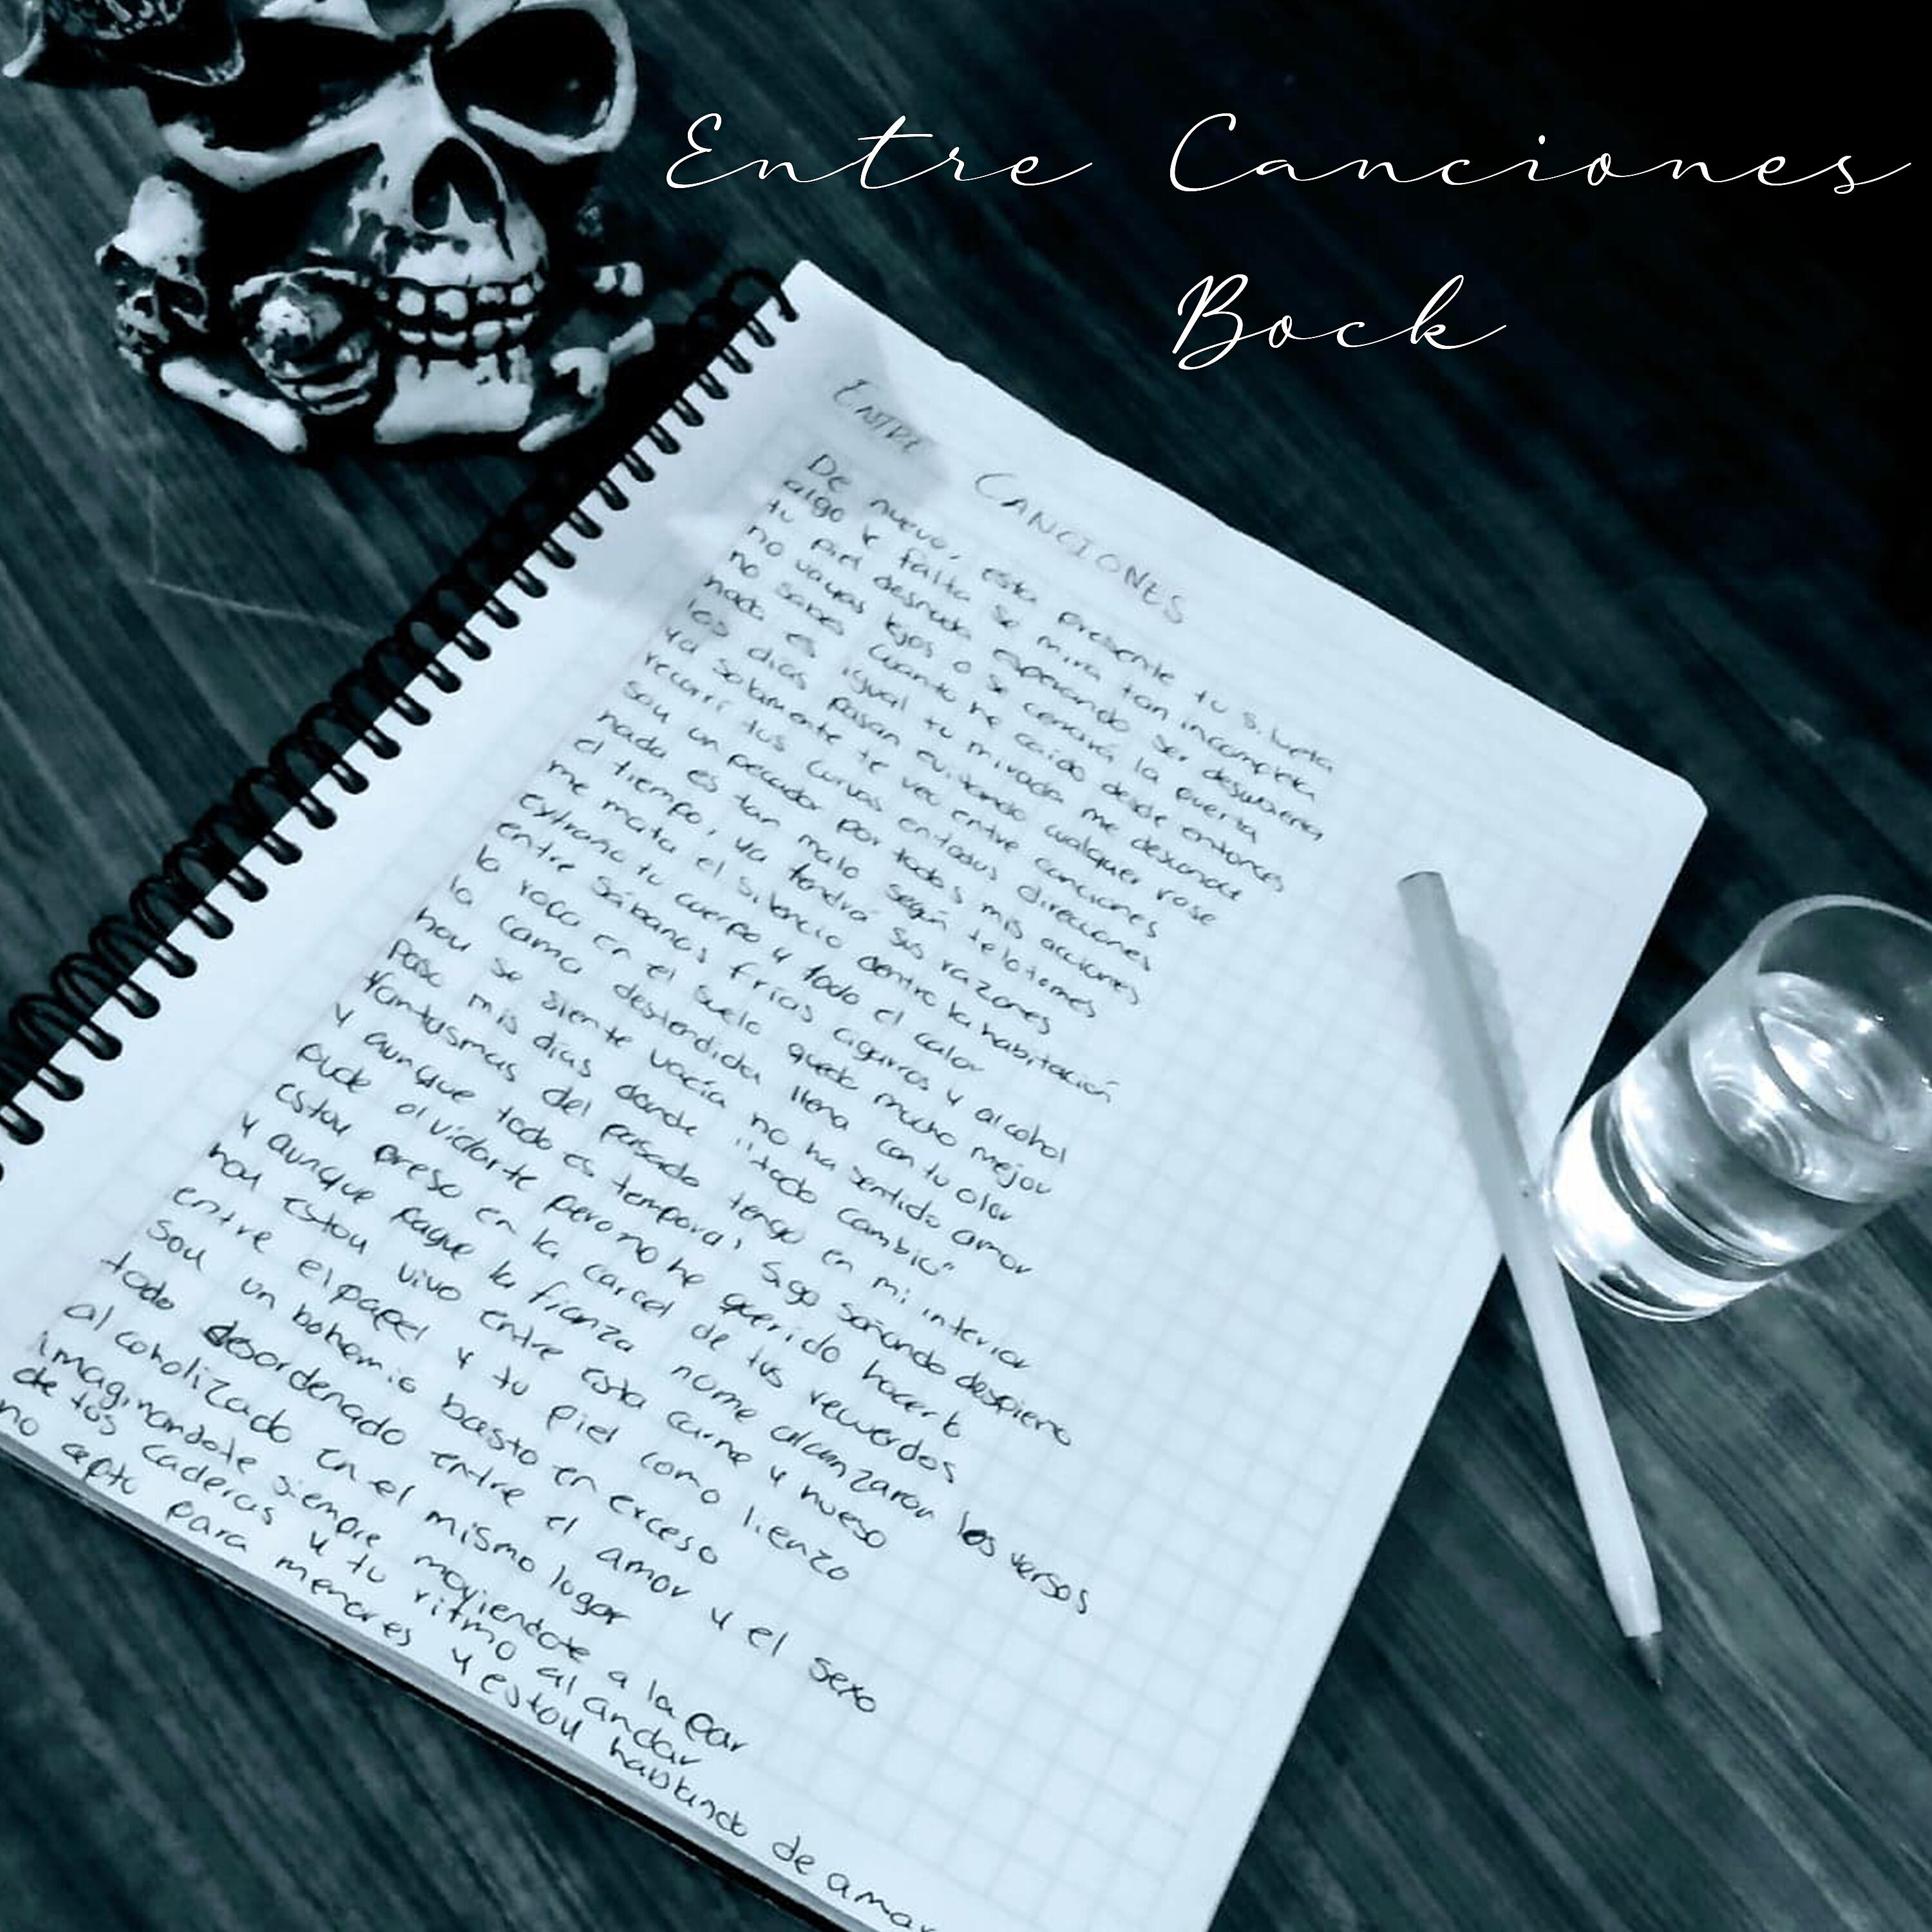 Entre Canciones
Bock
ENTRE CANCIONES
De nuevo, esta presente tu silueta
algo le falta se mira tan incompleta
tu piel desnuda esperando ser descubierta
no vayas lejos o se cerrará la puerta
no sabes cuanto he caido desde entonces
nada es igual tu mirada me desconoce
los dias pasan evitando cualquier rose
ya solamente te veo entre canciones
recorri tus curvas en todas direcciones
soy un pecador por todas mis acciones
nada es tan malo según te lo tomes
el tiempo, ya tendrá sus razones
me mata el silencio dentro la habitación
extraño tu cuerpo y todo el calor
entre sábanas frias cigarros y alcohol
la ropa en el suelo queda mucho mejor
la cama destendida llena con tu olor
hoy se siente vacía no ha sentido amor
paso mis días donde "todo cambio"
fantasmas del pasado tengo en mi interior
y aunque todo es temporal sigo soñando despierto
pude olvidarte pero no he querido hacerlo
estoy preso en la carcel de tus recuerdos
y aunque pague la fianza no me alcanzaron los versos
hoy estoy vivo entre esta carne y hueso
entre el papel y tu piel como lienzo
soy un bohemio basto en exceso
todo desordenado entre el amor y el sexo
alcoholizado en el mismo lugar
imaginandote siempre moviendote a la par
de tus caderas y tu ritmo al andar
no apto para menores y estoy hablando de amar